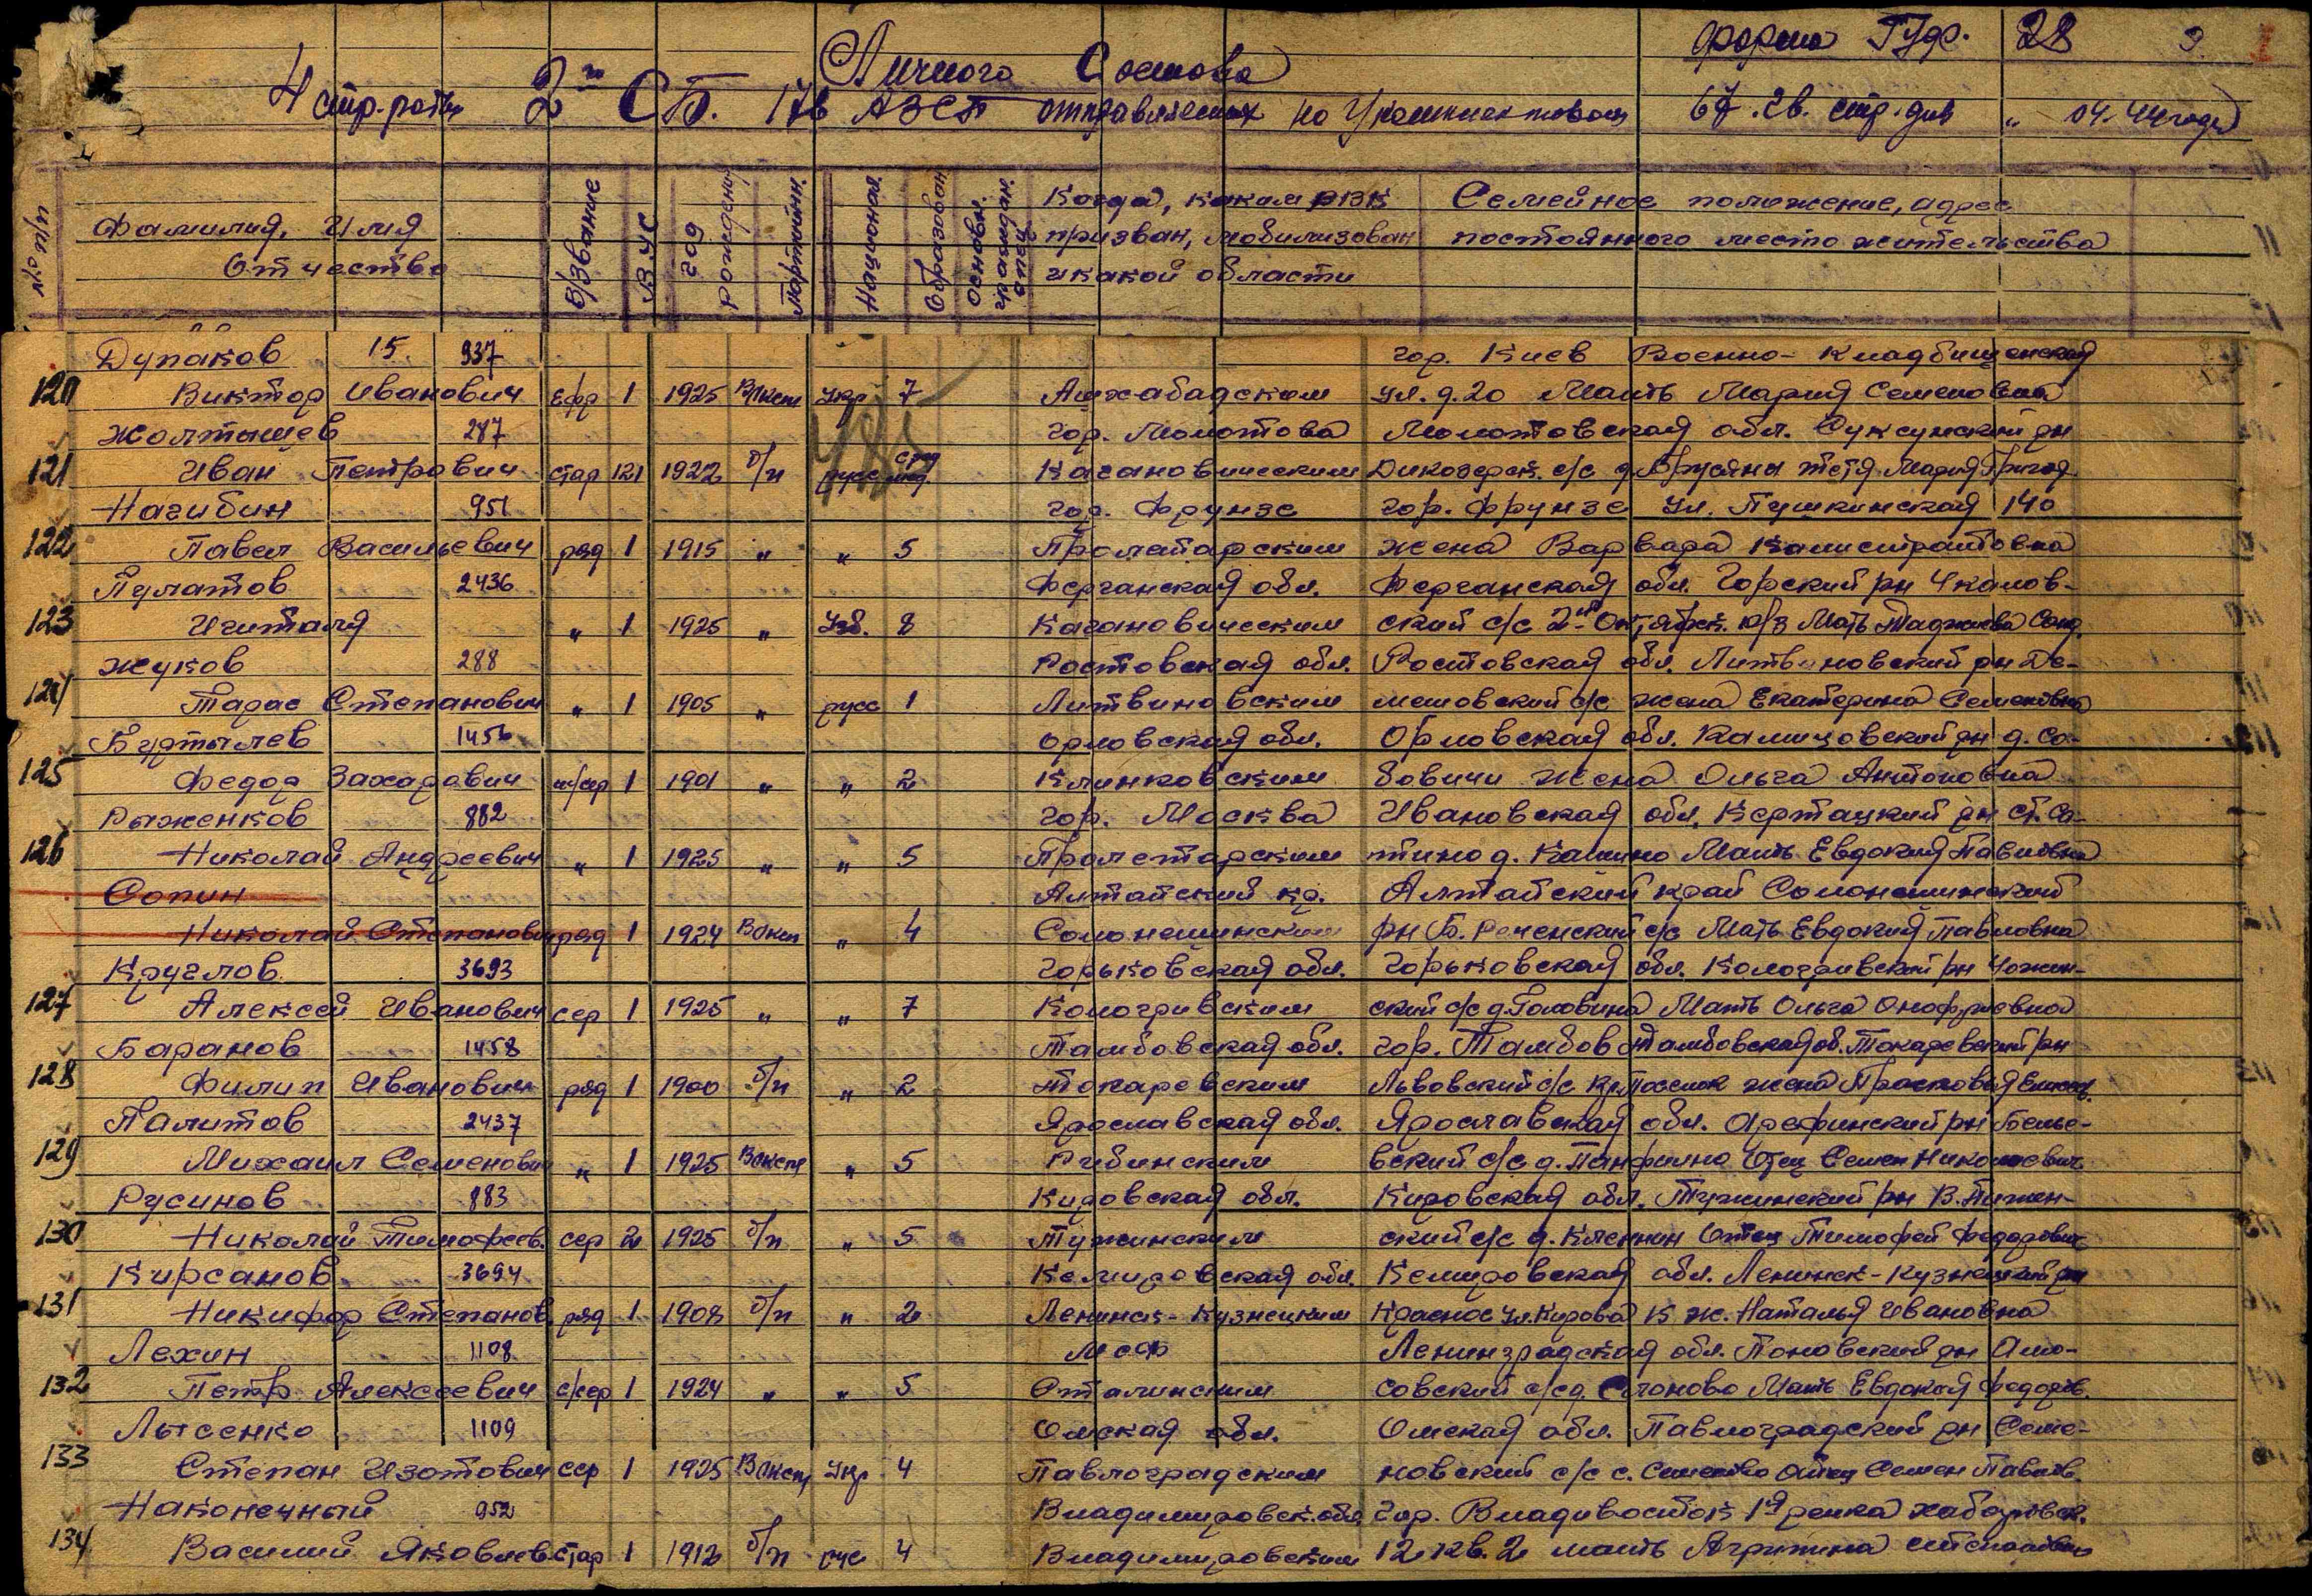 форма ГУФ. 28 9
Личного Состава
4 стр. роты 2го СБ. 176 АЗСП отправляемых на Укомплектован 67 гв. стр. див „ 04.44 года
Фамилия, Имя Отчество
В/звание
ВУС
год рождения
Партийн.
Национал.
Образован
Основн. граждан. спец
Когда, каким РВК призван, мобилизован и какой области
Семейное положение, адрес постоянного место жительства
Дупаков 15 937 гор. Киев Военно-Кладбищенская
120 Виктор Иванович Ефр 1 1925 Влксм Укр 7 Ашхабадским ул. д. 20 Мать Мария Семеновна
Жолтышев 287 гор. Молотова Молотовская обл. Суксунский рн
121 Иван Петрович стар 121 1922 б/п русс Кагановическим Дикозерск. с/с д. Брусяны тетя Мария Григор
Нагибин 951 гор. Фрунзе гор. Фрунзе ул. Пушкинская 140
122 Павел Васильевич ряд 1 1915 „ „ 5 Пролетарским жена Варвара Калистратовна
Пулатов 2436 Ферганская обл. Ферганская обл. Горский рн Чкалов-
123 Игитали „ 1 1925 „ Узб. 8 Кагановическим ский с/с 2й Октябрьск. к/з Мать
Жуков 288 Ростовская обл. Ростовская обл. Литвиновский рн Де-
124 Тарас Степанович „ 1 1905 „ русс 1 Литвиновским мешовский с/с жена Екатерина Семеновна
Буртылев 1456 Орловская обл. Орловская обл. рн д. Со-
125 Федор Захарович м/сер 1 1901 „ „ 2 Клинковским бовичи Жена Ольга Антоновна
Рыженков 882 гор. Москва Ивановская обл. рн ст. Со-
126 Николай Андреевич „ 1 1925 „ „ 5 Пролетарским тино д. Калино Мать Евдокия Павловна
Сопин Алтайский кр. Алтайский край Солонешинский
Николай Степанович ряд 1 1924 Влксм „ 4 Солонешинским рн Б. Реченский с/с Мать Евдокия Павловна
Круглов 3693 Горьковская обл. Горьковская обл. Кологривский рн
127 Алексей Иванович сер 1 1925 „ „ 7 Кологривским ский с/с д. Головина Мать Ольга Онофриевна
Баранов 1458 Тамбовская обл. гор. Тамбов Тамбовская об. Токаревский рн
128 Филип Иванович ряд 1 1900 б/п „ 2 Токаревским Львовский с/с Кр. Поселок жена Прасковья
Палитов 2437 Ярославская обл. Ярославская обл. Арефинский рн Белье-
129 Михаил Семенович „ 1 1925 Влксм „ 5 Рибинским вский с/с д. Панфилно Отец Семен Николаевич
Русинов 883 Кировская обл. Кировская обл. Тужинский рн В. Пижен-
130 Николай Тимофеев. сер 2 1925 б/п „ 5 Тужинским ский с/с д. Отец Тимофей Федорович
Кирсанов 3694 Кемировская обл. Кемировская обл. Ленинск-Кузнецкий рн
131 Никифор Степанов. ряд 1 1908 б/п „ 2 Ленинск-Кузнецким Красное ул. Кирова 15 ж. Наталья Ивановна
Лехин 1108 Ленинградская обл. рн Амо-
132 Петр Алексеевич с/сер 1 1924 „ „ 5 Сталинским совский с/с д. Мать Евдокия Федоров.
Лысенко 1109 Омская обл. Омская обл. Павлоградский рн Семе-
133 Степан Изотович сер 1 1925 Влксм Укр 4 Павлоградским новский с/с с. Отец Семен Павлов.
Наконечный 952 Владимировск. обл. гор. Владивосток 1я речка Хабаровск.
134 Василий Яковлев. стар 1 1912 б/п рус 4 Владимировским 12 Кв. 2 мать